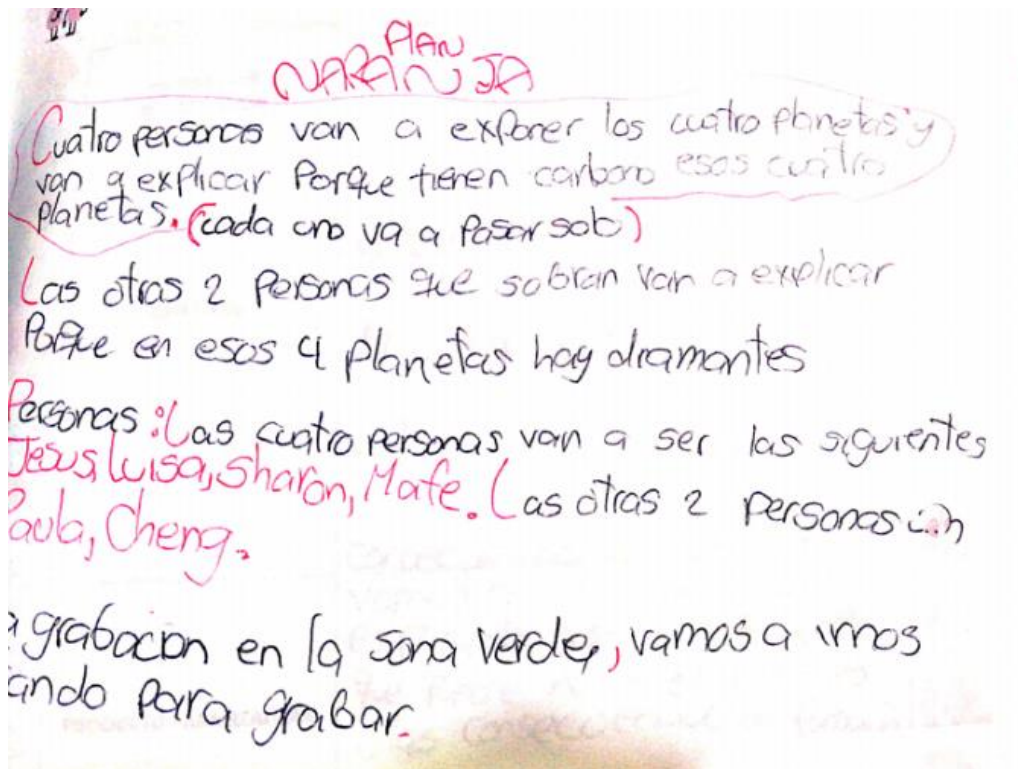 PLAN
NARANJA
Cuatro personas van a exponer los cuatro planetas y
van a explicar Porque tienen carbono esos cuatro
planetas. (cada uno va a Pasar solo)
Las otras 2 Personas que sobran van a explicar
Porque en esos 4 planetas hay diamantes
Personas: Las cuatro personas van a ser las siguientes
Jesus, Luisa, Sharon, Mafe. Las otras 2 personas
Paula, Cheng.
grabacion en la sona verde, vamos a irnos
ando para grabar.